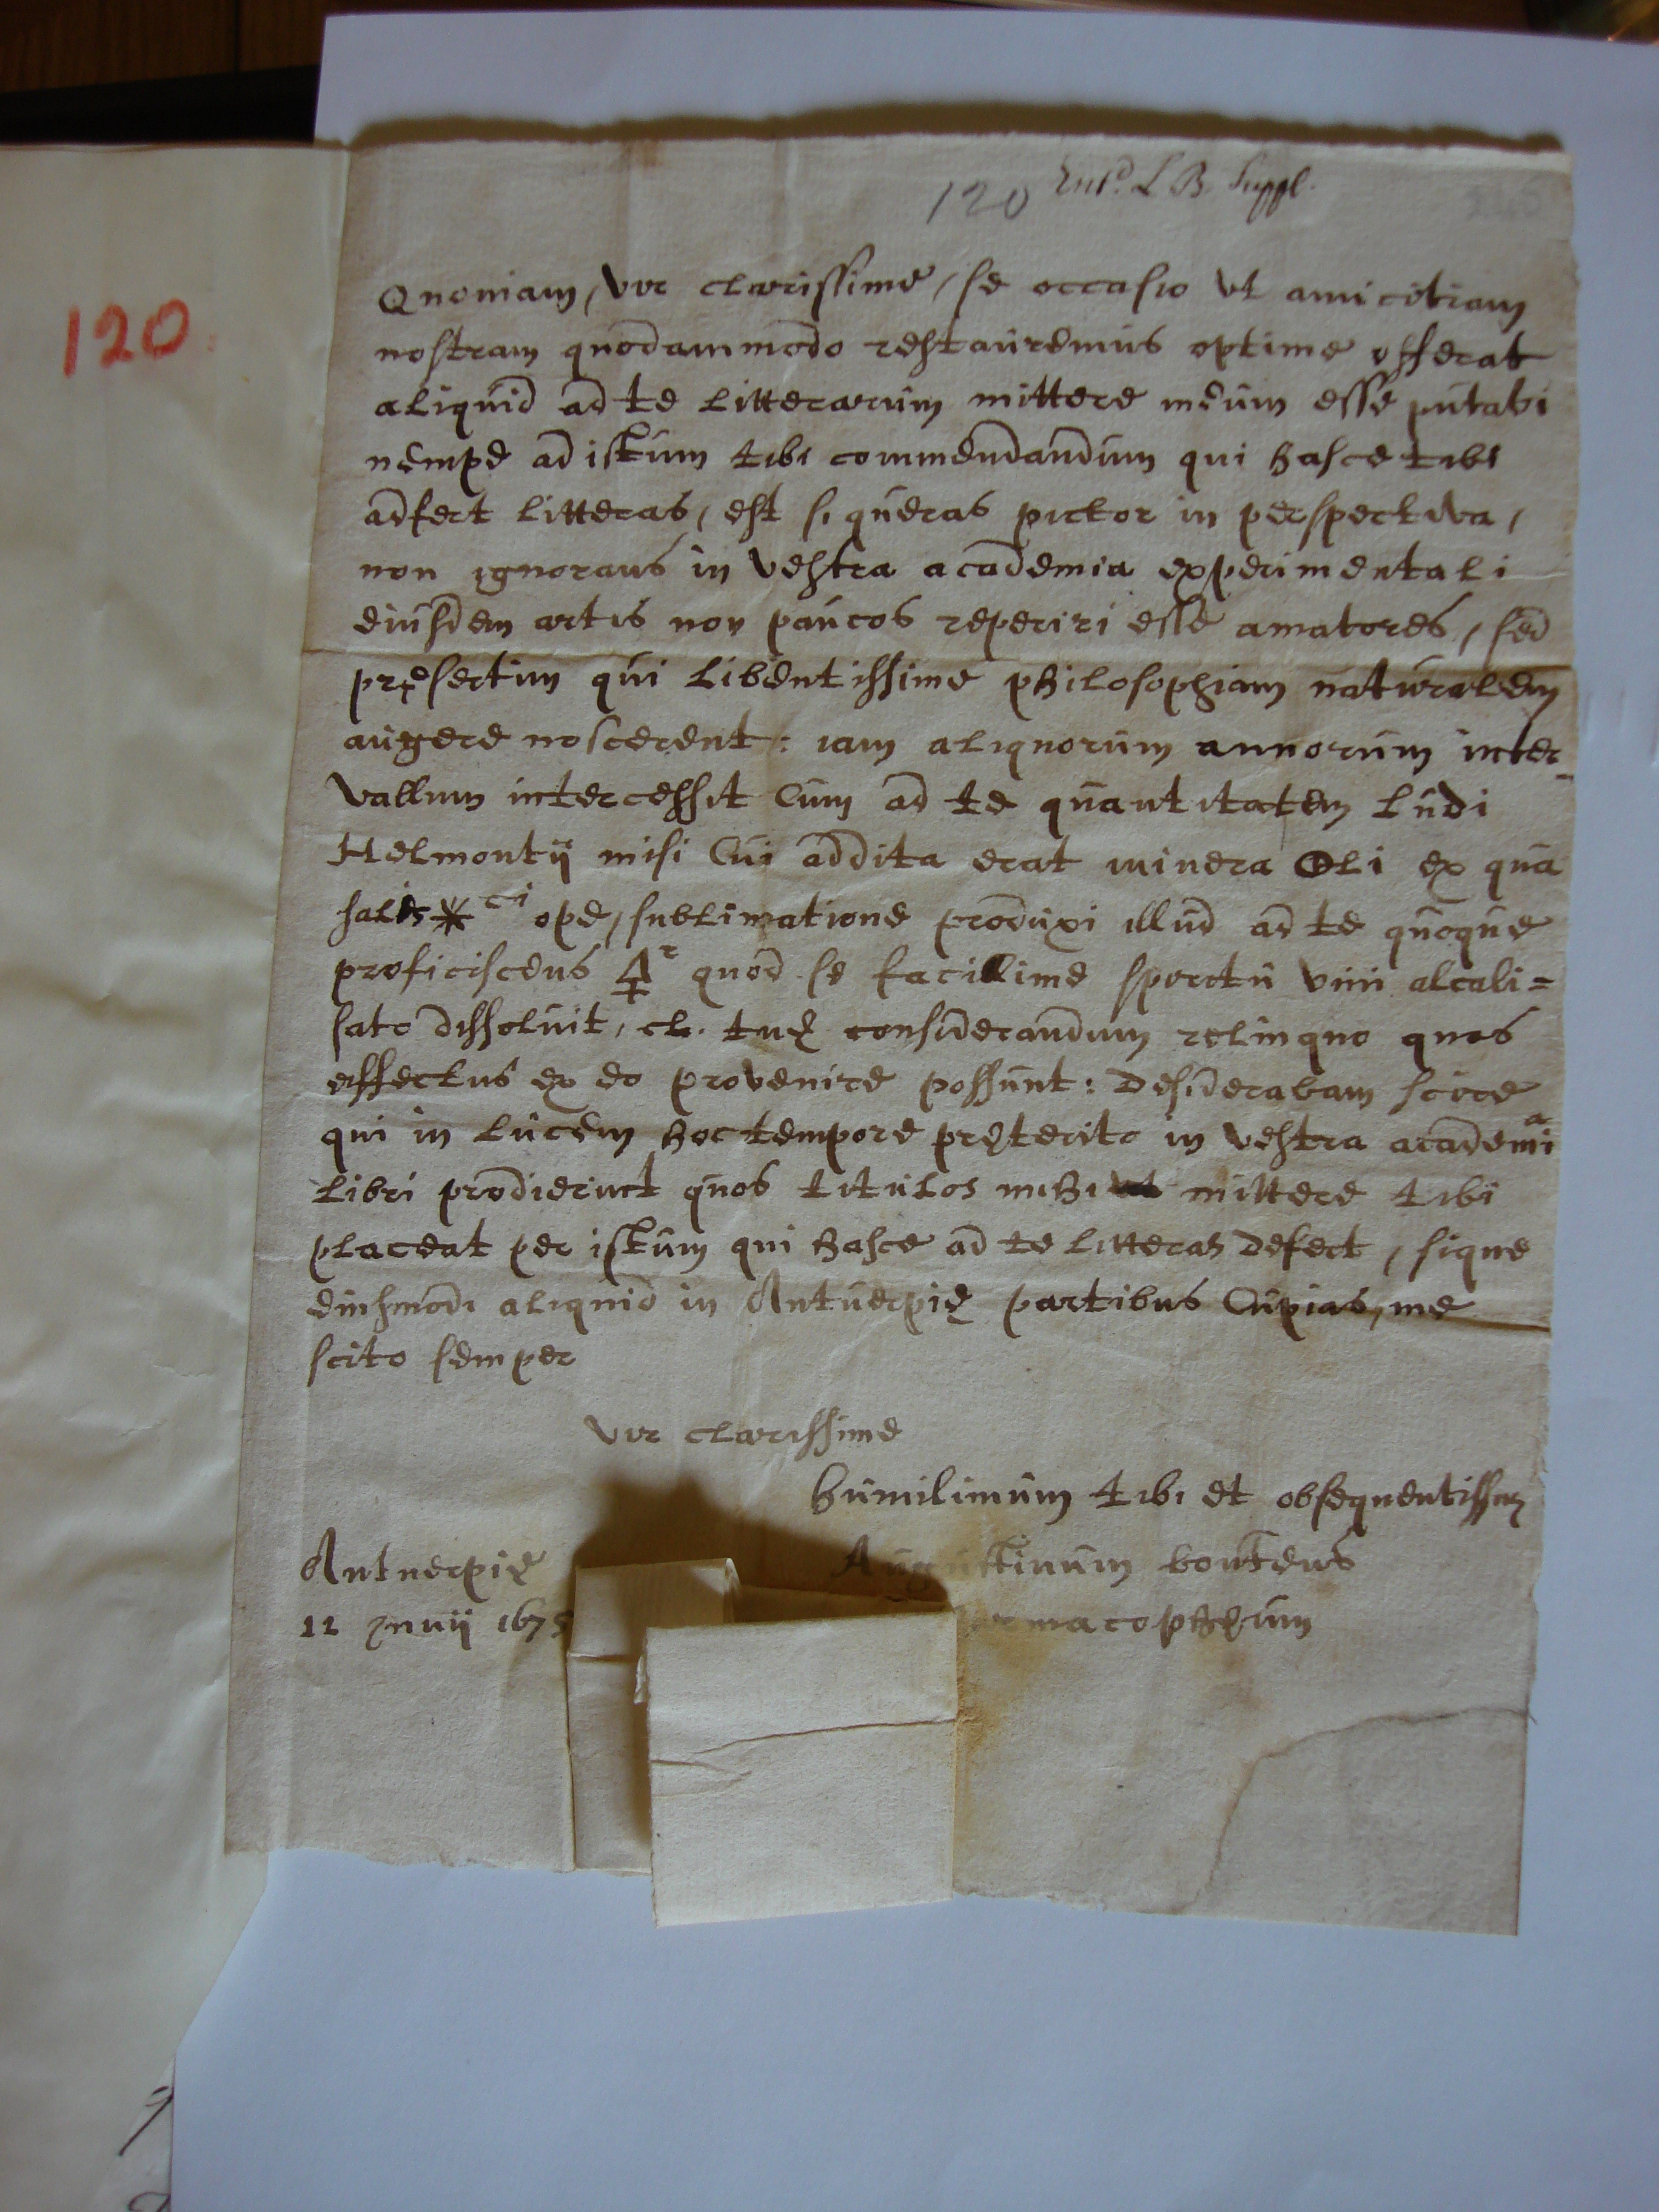 120 Ent.d L B. Suppl.
120
Quoniam, vir clarissime, se occasio ut amicitiam
nostram quodammodo restauremus optime offerat
aliquid ad te litterarum mittere meum esse putavi
nempe ad istum tibi commendandum qui hasce tibi
adfert litteras, est si queras pictor in perspectiva,
non ignorans in vestra academia experimentali
eiusdem artis non paucos reperiri esse amatores, sed
pręsertim qui libentissime philosophiam naturalem
augere noscerent: iam aliquorum annorum inter-
vallum intercessit cum ad te quantitatem ludi
Helmontij misi cui addita erat minera ☉li ex qua
salis *ci ope, sublimatione produxi illud ad te quoque
proficiscens 🜍r quod se facillime spiritu vini alcali=
sato dissolvit, cl. tuę considerandum relinquo quos
effectus ex eo provenire possunt: desiderabam scire
qui in lucem hoc tempore pręterito in vestra academia
libri prodierint quos titulos mihi mittere tibi
placeat per istum qui hasce ad te litteras defert, sique
eiusmodi aliquid in Antverpię partibus cupias, me
scito semper
vir clarissime
humilimum tibi et obsequentissm
Antverpię Augustinum boutens
12 Junij 1675 armacophęum